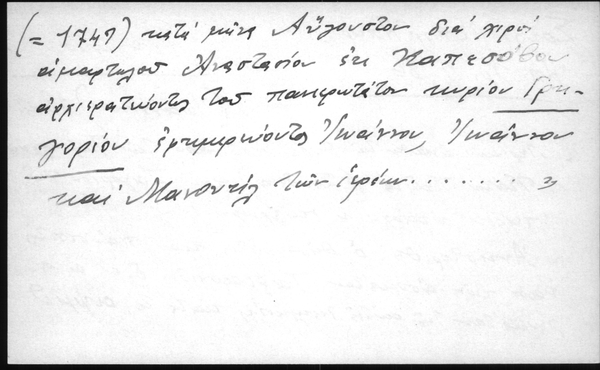 (= 1747) κατά μῆνα Αὔγουστον διά χειρός
ἁμαρτωλοῦ Ἀναστασίου ἐκ Καπεσόβου
ἀρχιερατεύοντος τοῦ πανιερωτάτου κυρίου Γρη-
γορίου ἐφημερεύοντος Ἰωάννου, Ἰωάννου
καί Μανουήλ τῶν ἱερέων........ »